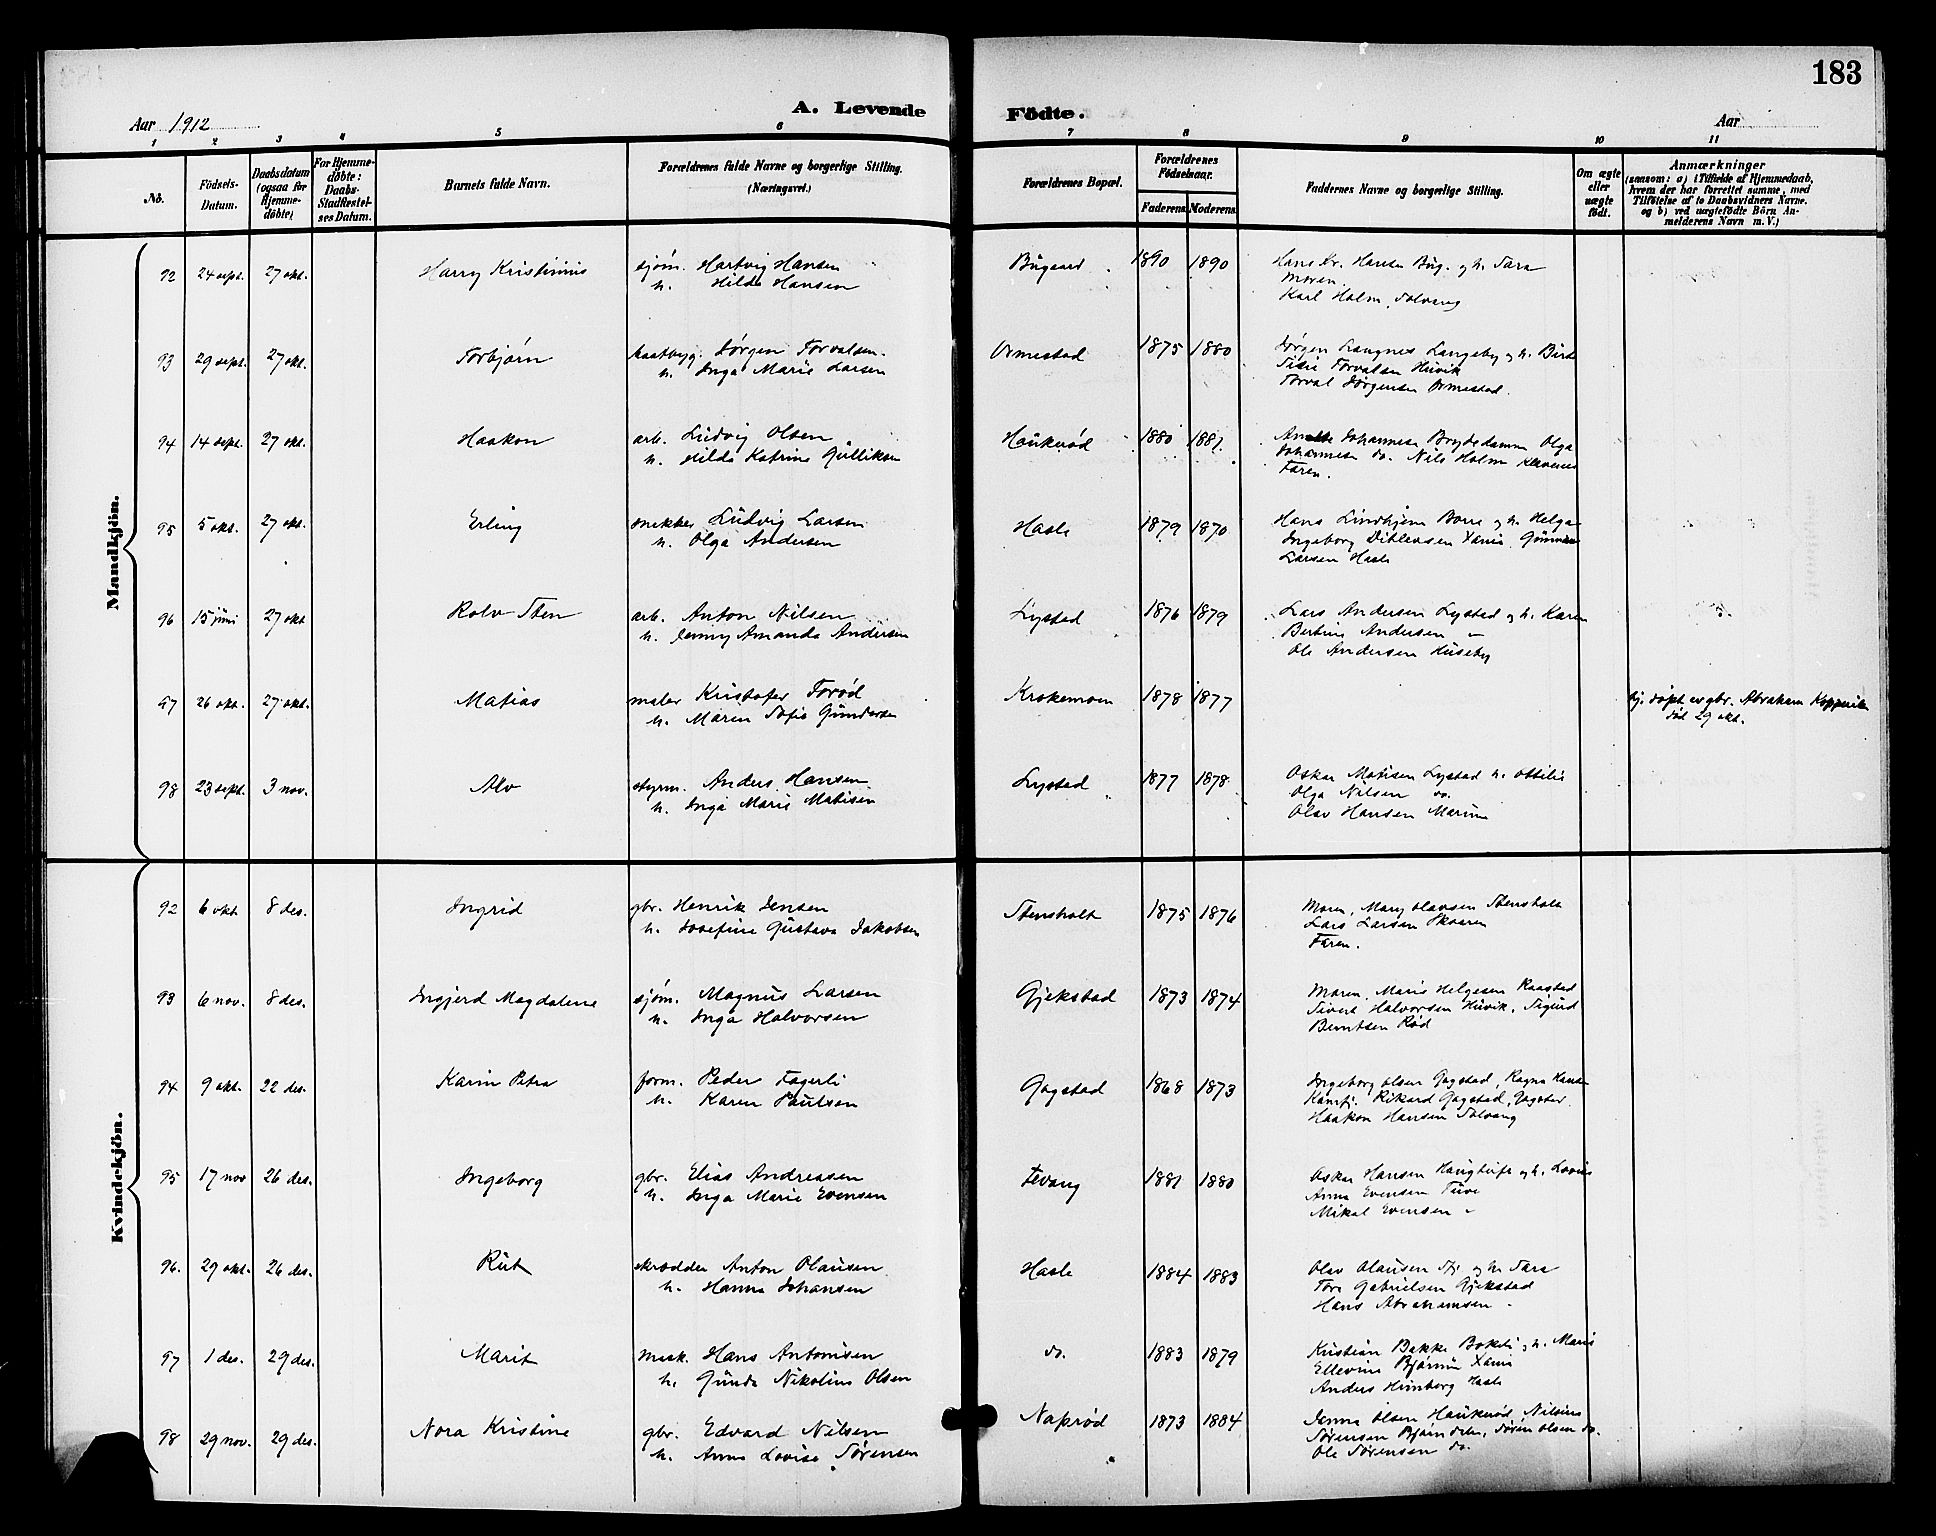 183
A. Levende Födte.
Aar 1912
Aar
1 2 3 4 5 6 7 8 9 10 11
No.
Födsels-Datum.
Daabsdatum (ogsaa for Hjemme-döbte)
For Hjemme-döbte: Daabs-Stadfestel-ses Datum.
Barnets fulde Navn.
Forældrenes fulde Navne og borgerlige Stilling. (Næringsvei.)
Forældrenes Bopæl.
Forældrenes Födselsaar.
Faderens Moderens
Faddernes Navne og borgerlige Stilling.
Om ægte eller uægte födt.
Anmærkninger
(saasom: a) i Tilfælde af Hjemmedaab, hvem der har forrettet samme, med Tilföielse af to Daabsvidners Navne. og b) ved uægtefödte Börn An-melderens Navn m.V.)
Mandkjön.
92 24 sept. 27 okt. Harry Kristinius sjøm. Hartvig Hansen Bugaard 1890 1890 Hans Kr. Hansen Bug. og h. Sara
h. Hilda Hansen Moren.
Karl Holm, Solvang
93 29 sept. 27 okt. Torbjørn baatbyg. Jørgen Torvalsen Ormestad 1875 1880 Jørgen Langnes Langeby og h. Birt
h. Inga Marie Larsen Torvalsen Huvik
Torval Jørgensen Ormestad.
94 14 sept. 27 okt. Haakon arb. Ludvig Olsen Haukerød 1880 1881 Johannesen Brydedamm Olga
h. Hilda Katrine Gulliksen Johannesen do. Nils Holm Klavenes
Faren.
95 5 okt. 27 okt. Erling snekker Ludvig Larsen Hasle 1879 1870 Hans Lindhjem Borre og h. Helga
h. Olga Andersen Ingeborg Ditlevsen Xania, Gunnar
Larsen Hasle
96 15 juni 27 okt Rolv Sten arb. Anton Nilsen Lystad 1876 1879 Lars Andersen Lystad og h. Karen
h. Jenny Amanda Andersen Bertine Andersen "
Ole Andersen Huseby
97 26 okt. 27 okt. Matias maler Kristofer Torød Krokemoen 1878 1877 hj. døpt av gbr. Abraham
h. Maren Sofie Gundersen død 29 okt.
98 23 sept. 3 nov. Alv styrm. Anders Hansen Lystad 1877 1878 Oskar Matisen Lystad h. Ottilie
h. Inga Marie Matisen Olga Nilsen do.
Olav Hansen Marum
Kvindekjön.
92 6 okt 8 des. Ingrid gbr. Henrik Jensen Stensholt 1875 1876 Moren, Mary Olavsen Stensholt
h. Josefine Gustava Jakobsen Lars Larsen Skaaren
Faren.
93 6 nov. 8 des. Ingjerd Magdalene sjøm. Magnus Larsen Gjekstad 1873 1874 Moren, Marie Helgesen Raastad
h. Inga Halvorsen Sivert Halvorsen Huvik, Sigurd
Berntsen Rød
94 9 okt. 22 des. Karin Petra form. Peder Fagerli Gogstad 1868 1873 Ingeborg Olsen Gogstad, Ragna Hansen
h. Karen Paulsen Kamfj. Rikard Gogstad, Gogstad.
Haakon Hansen Solvang
95 17 nov 26 des. Ingeborg gbr. Elias Andreasen Fevang 1881 1880 Oskar Hansen Haugtuft og h. Lovise
h. Inga Marie Evensen Anna Evensen Tuve
Mikal Evensen "
96. 29 okt. 26 des. Rut skrædder Anton Olausen Hasle 1884 1883 Olav Olausen Stj og h Sara
h. Hanna Johansen Tora Gabrielsen Gjekstad
Hans Abrahamsen "
97 1 des. 29 des. Marit mask. Hans Antonisen do. 1883 1879 Kristian Bakke Bokeli og h. Marie
h. Gunda Nikoline Olsen Ellevine Bjørnum Xania
Anders Himberg Hasle
98 29 nov. 29 des. Nora Kristine gbr. Edvard Nilsen Naprød 1873 1884 Jenna Olsen Haukerød, Nilsine
h. Anna Lovise Sørensen Sørensen Bjørndalen, Søren Olsen do.
Ole Sørensen do.